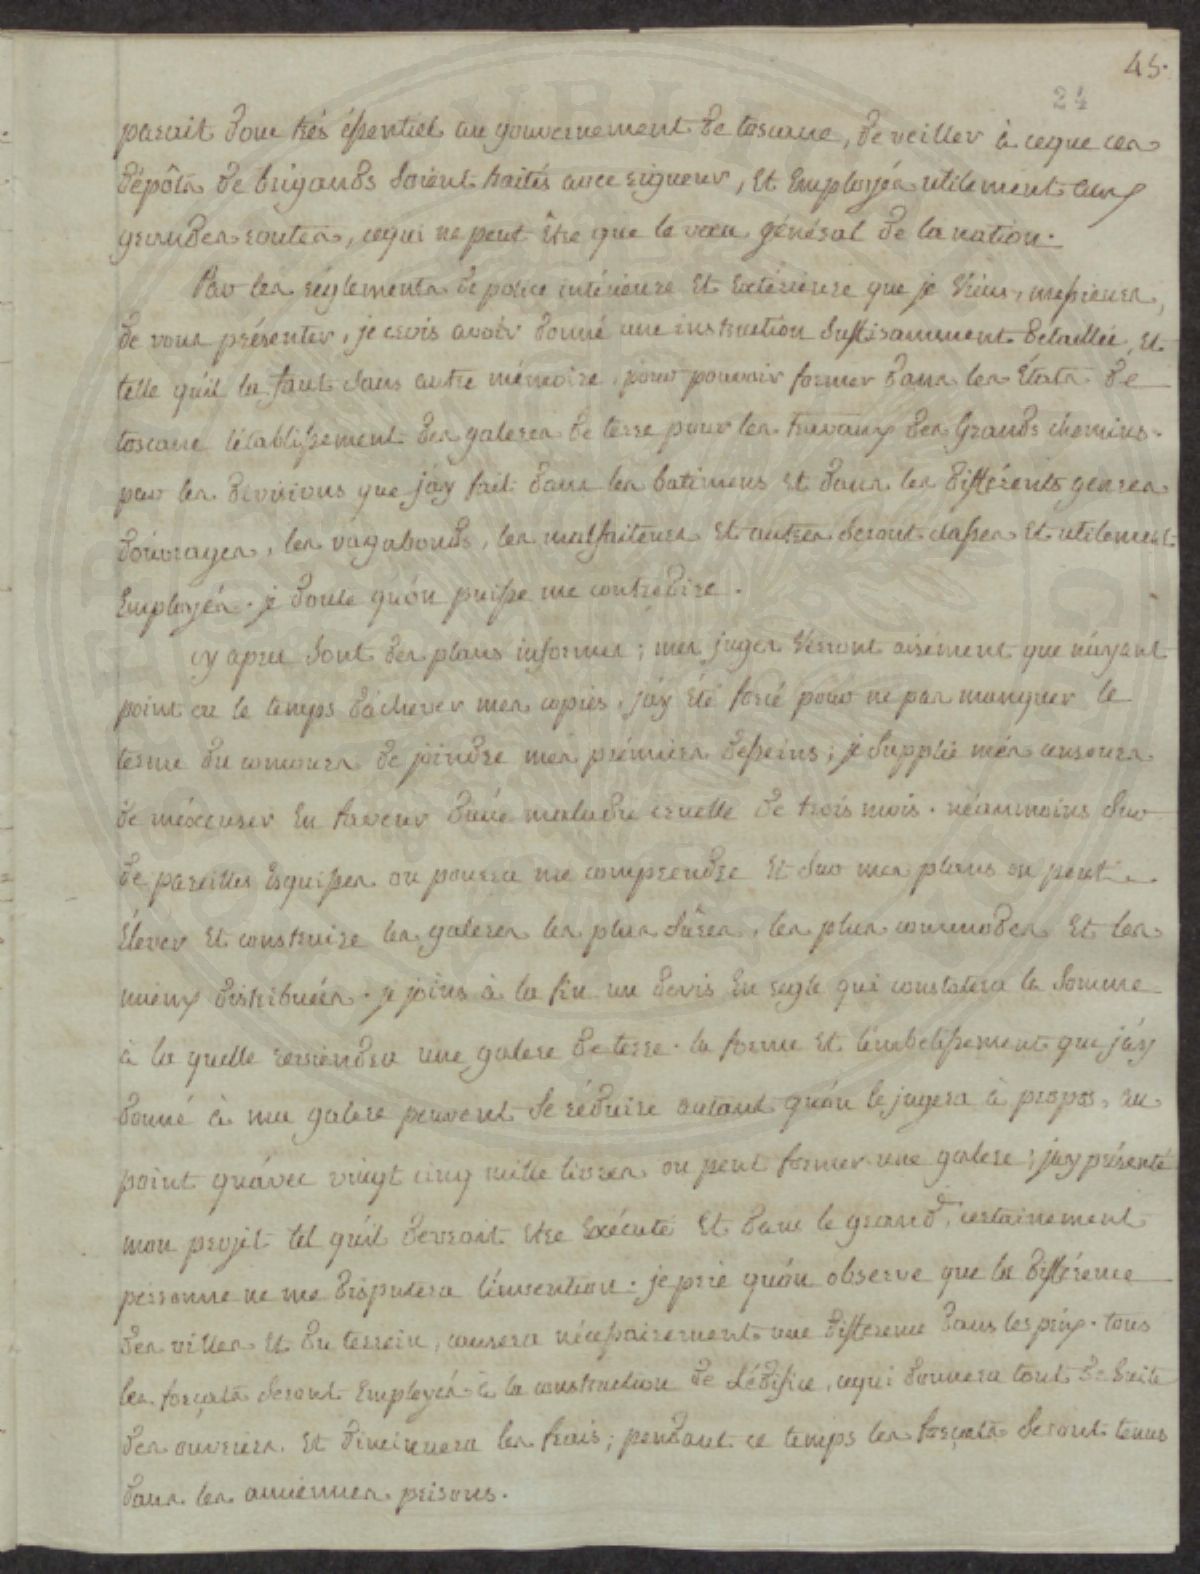 45.
24
parait donc trés éssentiel au gouvernement de toscane, de veiller à ceque ces
dépôts de brigands soient traités avec rigueur, et Employés utilement aux
grandes routes, cequi ne peut être que le vœu général de la nation.
Par les réglements de police intérieure et extérieure que je viens, messieurs,
de vous présenter, je crois avoir donné une instruction suffisamment détaillée, et
telle qu'il la faut sans autre mémoire, pour pouvoir former dans les États de
toscane l'établissement des galeres de terre pour les travaux des Grands chemins.
par les divisions que j'ay fait dans les batimens et dans les différents genres
d'ouvrages, les vagabonds, les malfaiteurs et autres seront classes et utilement
Employés. je doute qu'on puisse me contredire.
cy aprés sont des plans informes; mes juges verront aisément que n'ayant
point eu le temps d'achever mes copies, j'ay été forcé pour ne pas manquer le
terme du concours de joindre mes prémiers desseins; je supplie mes censeurs
de m'éxcuser en faveur d'une maladie cruelle de trois mois. néanmoins sur
de pareilles Esquisses on pourra me comprendre et sur mes plans on peut
Élever et construire les galeres les plus sûres, les plus commodes et les
mieux distribuées. je joins à la fin un devis en regle qui constatera la somme
à la quelle reviendra une galere de terre. la forme et l'embelissement que j'ay
donné à ma galere peuvent se réduire autant qu'on le jugera à propos, au
point qu'avec vingt cinq mille livres on peut former une galere; j'ay présenté
mon projet tel qu'il devroit etre exécuté et dans le grand, certainement
personne ne me disputera l'invention. je prie qu'on observe que la différence
des villes et du terrein, causera nécessairement une difference dans les prix. tous
les forçats seront Employés à la construction de l'édifice, cequi donnera tout de suite
des ouvriers et diminuera les frais; pendant ce temps les forçats seront tenus
dans les anciennes prisons.